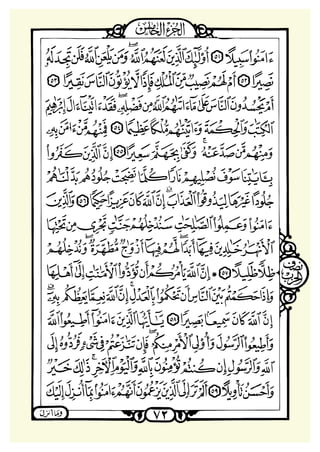 الجزء الخامس
ءَامَنُوا۟ سَبِيلًا ٥١ أُو۟لَٰٓئِكَ ٱلَّذِينَ لَعَنَهُمُ ٱللَّهُ وَمَن يَلْعَنِ ٱللَّهُ فَلَن تَجِدَ لَهُۥ
نَصِيرًا ٥٢ أَمْ لَهُمْ نَصِيبٌ مِّنَ ٱلْمُلْكِ فَإِذًا لَّا يُؤْتُونَ ٱلنَّاسَ نَقِيرًا ٥٣
أَمْ يَحْسُدُونَ ٱلنَّاسَ عَلَىٰ مَآ ءَاتَىٰهُمُ ٱللَّهُ مِن فَضْلِهِۦ فَقَدْ ءَاتَيْنَآ ءَالَ إِبْرَٰهِيمَ
ٱلْكِتَٰبَ وَٱلْحِكْمَةَ وَءَاتَيْنَٰهُم مُّلْكًا عَظِيمًا ٥٤ فَمِنْهُم مَّنْ ءَامَنَ بِهِۦ
وَمِنْهُم مَّن صَدَّ عَنْهُ وَكَفَىٰ بِجَهَنَّمَ سَعِيرًا ٥٥ إِنَّ ٱلَّذِينَ كَفَرُوا۟
بِـَٔايَٰتِنَا سَوْفَ نُصْلِيهِمْ نَارًا كُلَّمَا نَضِجَتْ جُلُودُهُم بَدَّلْنَٰهُمْ
جُلُودًا غَيْرَهَا لِيَذُوقُوا۟ ٱلْعَذَابَ إِنَّ ٱللَّهَ كَانَ عَزِيزًا حَكِيمًا ٥٦ وَٱلَّذِينَ
ءَامَنُوا۟ وَعَمِلُوا۟ ٱلصَّٰلِحَٰتِ سَنُدْخِلُهُمْ جَنَّٰتٍ تَجْرِى مِن تَحْتِهَا
ٱلْأَنْهَٰرُ خَٰلِدِينَ فِيهَآ أَبَدًا لَّهُمْ فِيهَآ أَزْوَٰجٌ مُّطَهَّرَةٌ وَنُدْخِلُهُمْ
ظِلًّا ظَلِيلًا ٥٧ ۞ إِنَّ ٱللَّهَ يَأْمُرُكُمْ أَن تُؤَدُّوا۟ ٱلْأَمَٰنَٰتِ إِلَىٰٓ أَهْلِهَا
نصف الحزب
وَإِذَا حَكَمْتُم بَيْنَ ٱلنَّاسِ أَن تَحْكُمُوا۟ بِٱلْعَدْلِ إِنَّ ٱللَّهَ نِعِمَّا يَعِظُكُم بِهِۦٓ
إِنَّ ٱللَّهَ كَانَ سَمِيعًۢا بَصِيرًا ٥٨ يَٰٓأَيُّهَا ٱلَّذِينَ ءَامَنُوٓا۟ أَطِيعُوا۟ ٱللَّهَ
وَأَطِيعُوا۟ ٱلرَّسُولَ وَأُو۟لِى ٱلْأَمْرِ مِنكُمْ فَإِن تَنَٰزَعْتُمْ فِى شَىْءٍ فَرُدُّوهُ إِلَى
ٱللَّهِ وَٱلرَّسُولِ إِن كُنتُمْ تُؤْمِنُونَ بِٱللَّهِ وَٱلْيَوْمِ ٱلْأَخِرِ ذَٰلِكَ خَيْرٌ
وَأَحْسَنُ تَأْوِيلًا ٥٩ أَلَمْ تَرَ إِلَى ٱلَّذِينَ يَزْعُمُونَ أَنَّهُمْ ءَامَنُوا۟ بِمَآ أُنزِلَ إِلَيْكَ
٧٢
وما انزل